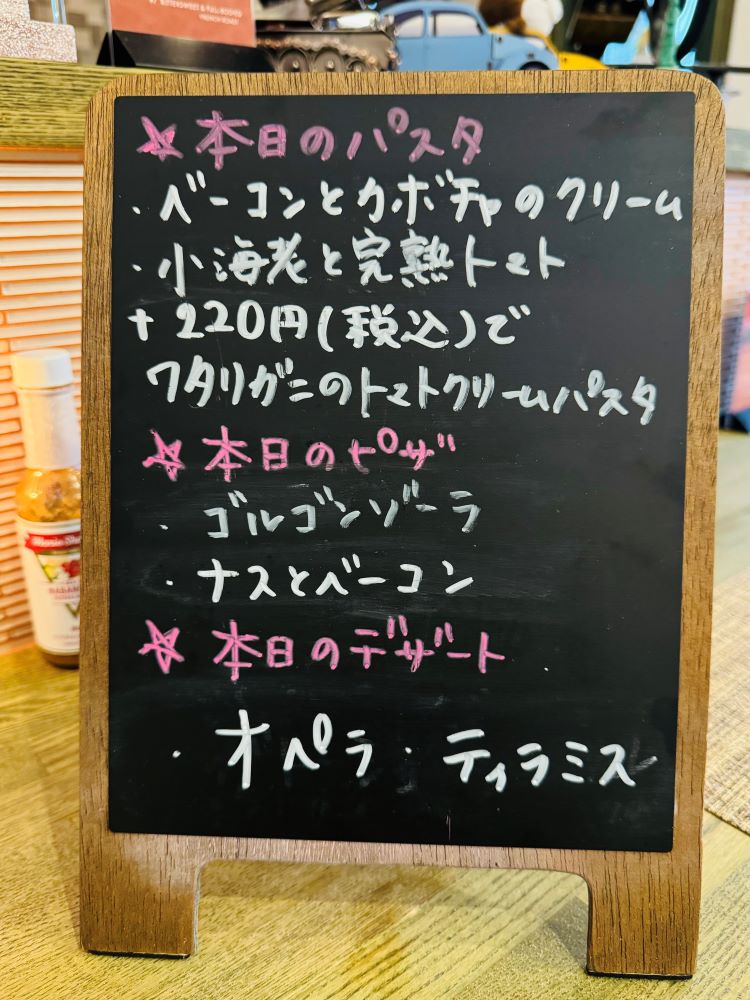 BITTERSWEET & FULL-BODIED
FRENCH ROAST
☆本日のパスタ
・ベーコンとカボチャのクリーム
・小海老と完熟トマト
+220円(税込)で
ワタリガニのトマトクリームパスタ
☆本日のピザ
・ゴルゴンゾーラ
・ナスとベーコン
☆本日のデザート
・オペラ・ティラミス